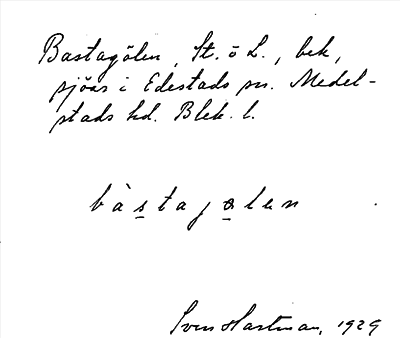 Bastagölen, St. o L., bek,
sjöar i Edestads sn. Medel-
stads hd. Blek. l.
bàstajølen
Sven Hartman, 1929